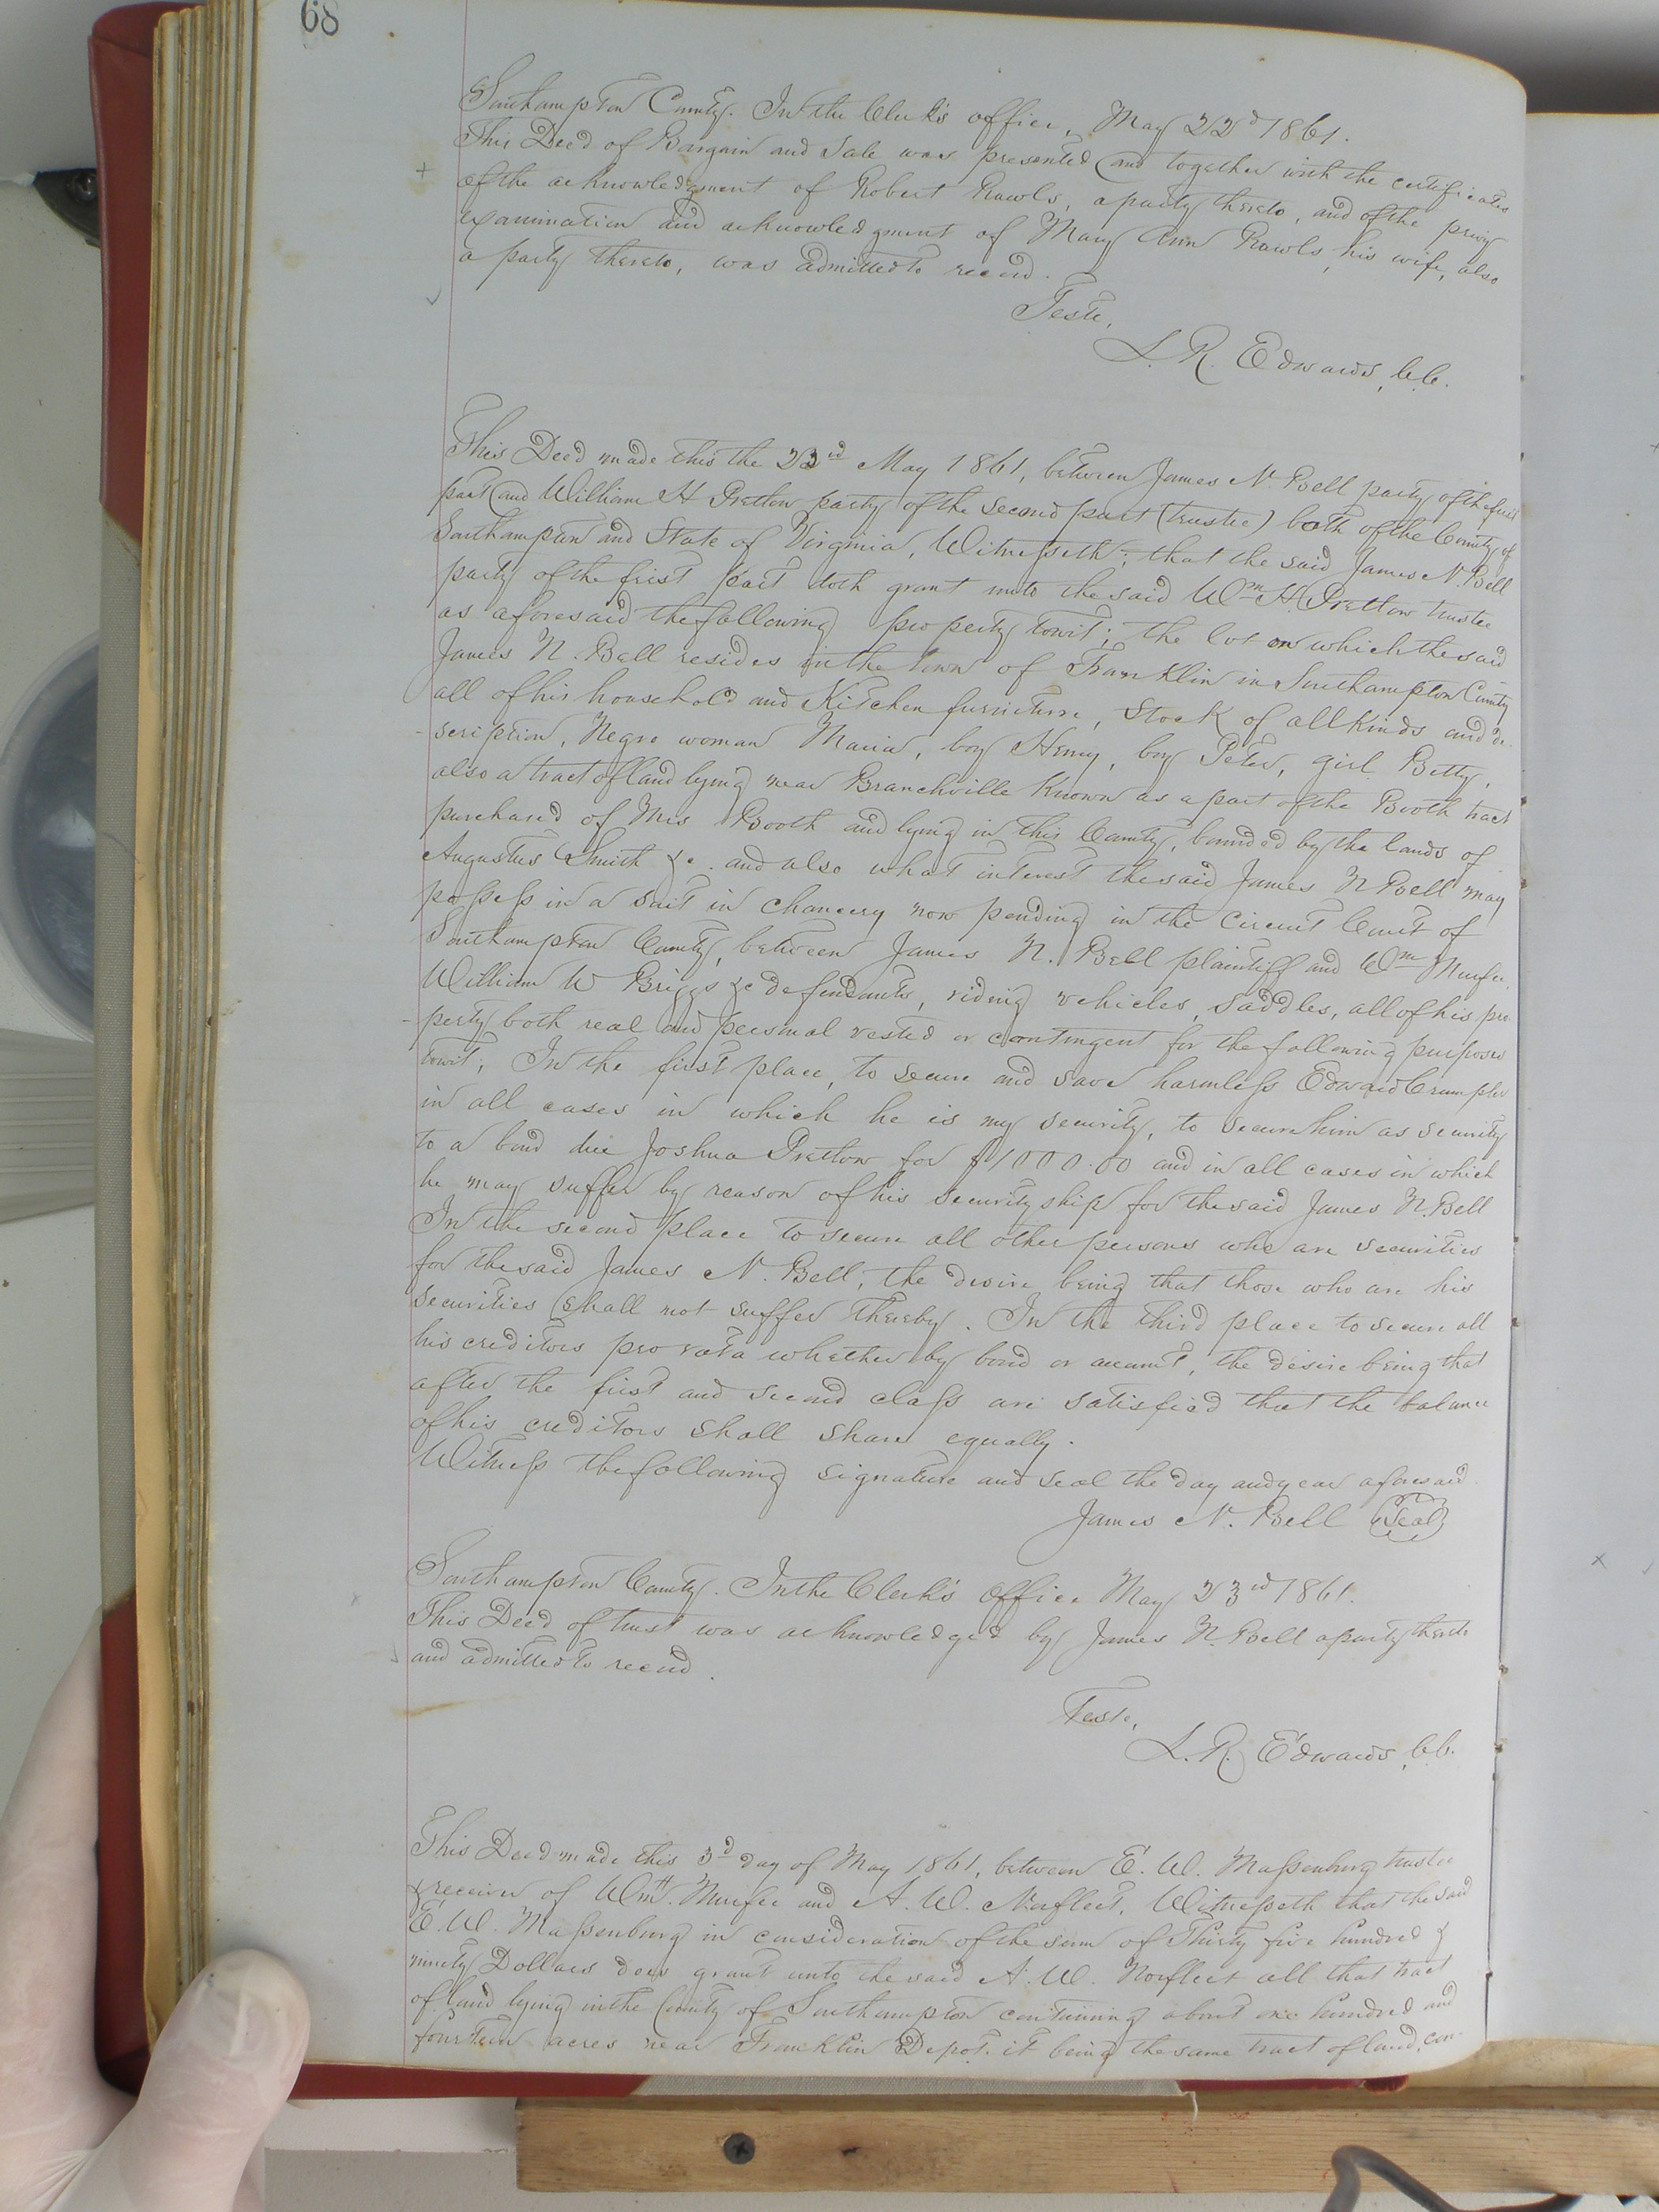 68
Southampton County. In the Clerk's office, May 22d 1861.
This Deed of Bargain and Sale was presented and together with the certificates
of the acknowledgment of Robert Rawls, a party thereto, and of the privy
examination and acknowledgment of Mary Ann Rawls, his wife, also
a party thereto, was admitted to record.
Teste,
L. R. Edwards, C.C.
This Deed made this the 23rd May 1861, between James N. Bell party of the first
part and William H Pretlow party of the second part (trustee) both of the County of
Southampton and State of Virginia, Witnesseth; that the said James N. Bell
party of the first part doth grant unto the said Wm. H. Pretlow trustee
as aforesaid the following property towit; the lot on which the said
James N. Bell resides in the Town of Franklin in Southampton County
all of his household and Kitchen furniture, Stock of all kinds and de-
-scription, Negro woman Maria, boy Henry, boy Peter, girl Betty,
also a tract of land lying near Branchville known as a part of the Booth tract
purchased of Mrs Booth and lying in this County, bounded by the lands of
Augustus Smith &c. and also what interest the said James N Bell may
possess in a suit in chancery now pending in the Circuit Court of
Southampton County, between James N. Bell plaintiff and Wm Murfee,
William W Briggs &c defendants, riding vehicles, saddles, all of his pro-
-perty both real and personal vested or contingent for the following purposes
towit; In the first place, to secure and save harmless Edward Crumpler
in all cases in which he is my security, to secure him as security
to a bond due Joshua Pretlow for $1000.00 and in all cases in which
he may suffer by reason of his securityship for the said James N. Bell
In the second place to secure all other persons who are securities
for the said James N. Bell, the desire being that those who are his
securities shall not suffer thereby. In the third place to secure all
his creditors pro rata whether by bond or account, the desire being that
after the first and second class are satisfied that the balance
of his creditors shall share equally.
Witness the following signature and seal the day and year aforesaid
James N. Bell (Seal)
Southampton County. In the Clerk's office May 23rd 1861.
This Deed of trust was acknowledged by James N. Bell a party thereto
and admitted to record.
Teste,
L. R. Edwards, C.C.
This Deed made this 3d day of May 1861, between E. W. Massenburg trustee
& receiver of Wm. Murfee and A. W. Norfleet, Witnesseth that the said
E. W. Massenburg in consideration of the sum of Thirty five hundred &
ninety Dollars does grant unto the said A. W. Norfleet all that tract
of land lying in the County of Southampton containing about one hundred and
fourteen acres near Franklin Depot. it being the same tract of land, con-